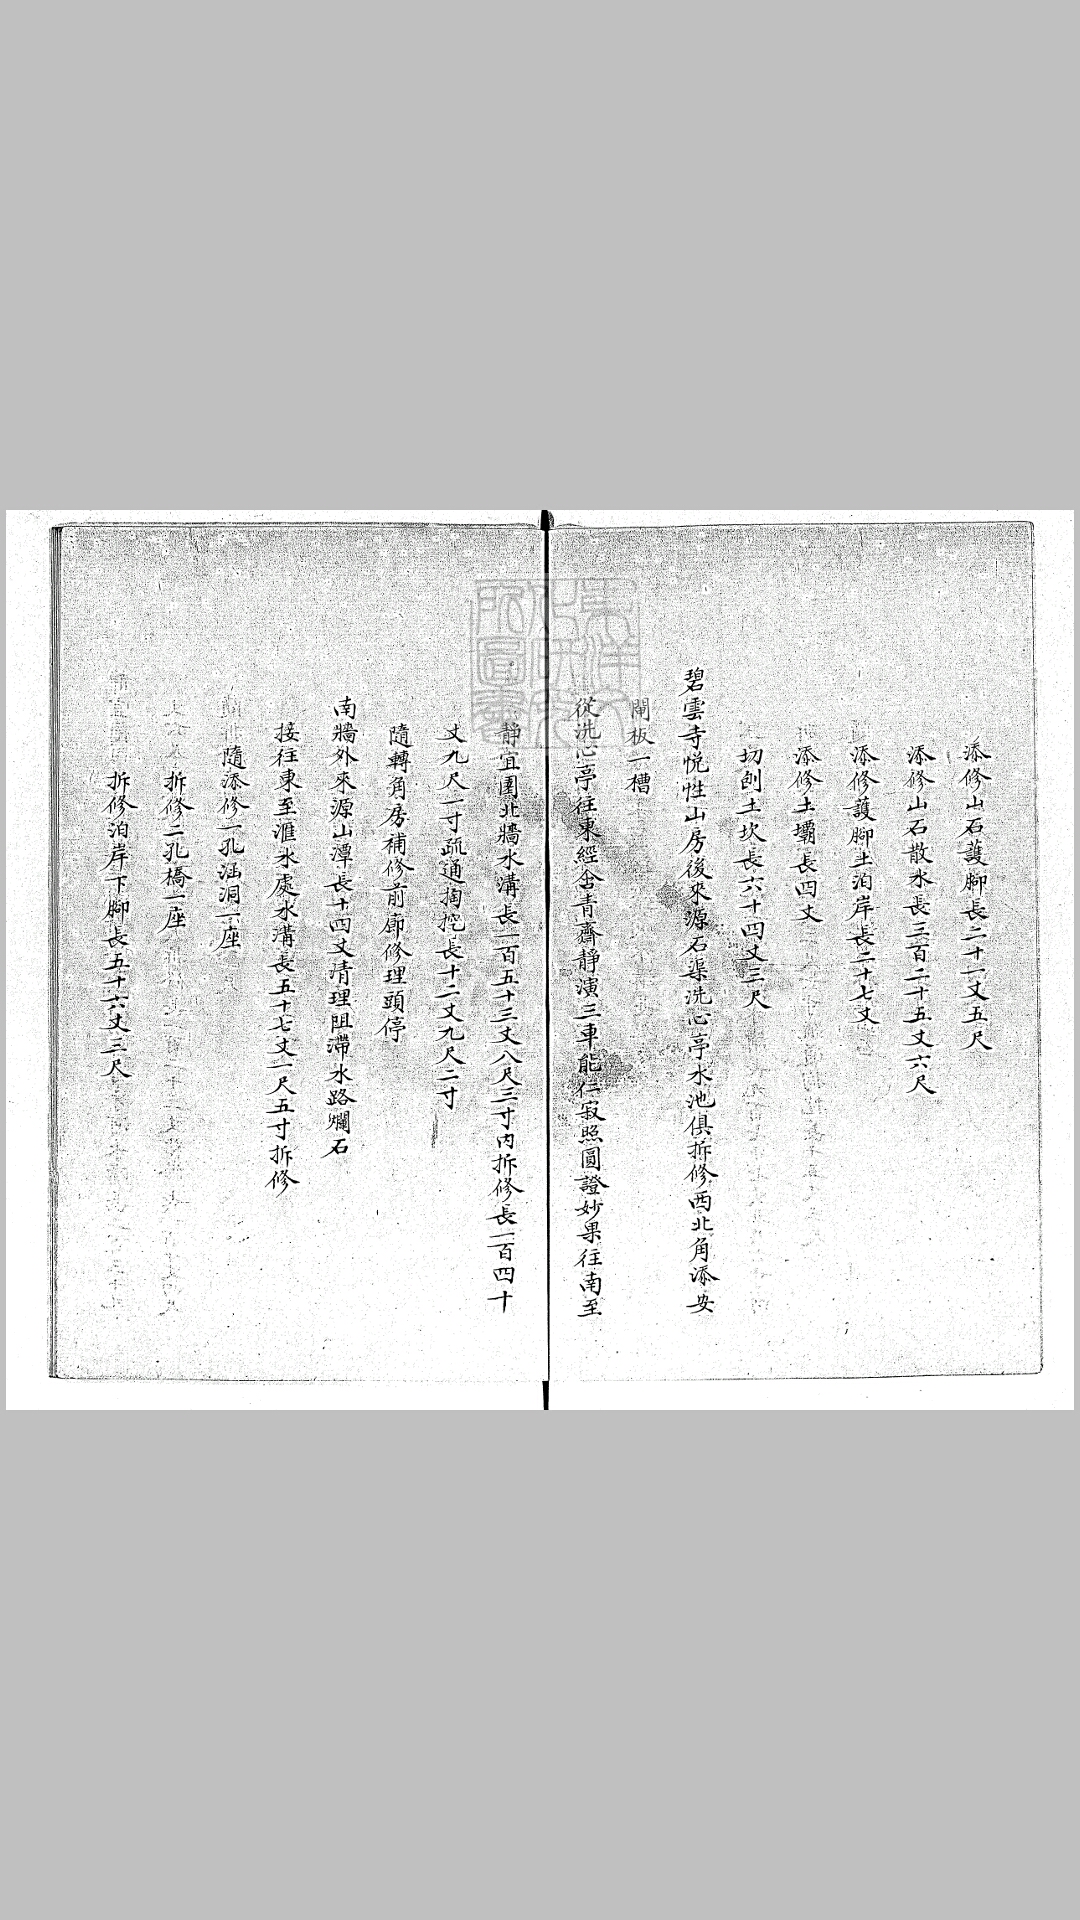 添修山石護腳長二十一丈五尺
添修山石散水長三百二十五丈六尺
添修護腳土泊岸長二十七丈
添修土壩長四丈
切刨土坎長六十四丈三尺
碧雲寺悅性山房後來源石渠洗心亭水池俱拆修西北角添安
閘板一槽
從洗心亭往東經舍青齋靜演三車能仁寂照圓證妙果往南至
靜宜園北牆水溝長一百五十三丈八尺三寸內拆修長一百四十
丈九尺一寸疏通掏挖長十二丈九尺二寸
隨轉角房補修前廊修理頭停
南牆外來源山潭長十四丈清理阻滯水路爛石
接往東至滙水處水溝長五十七丈一尺五寸拆修
隨添修一孔涵洞一座
拆修二孔橋一座
拆修泊岸下腳長五十六丈三尺
東洋文化研究所圖書